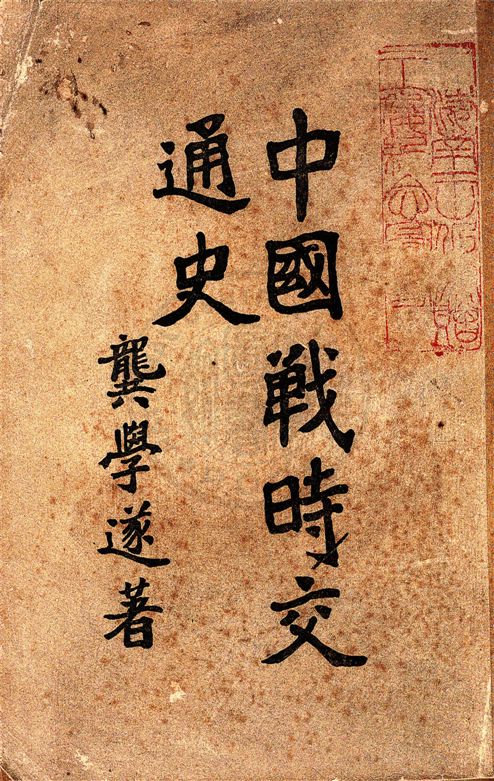 中國战時交
通史
龔學遂著